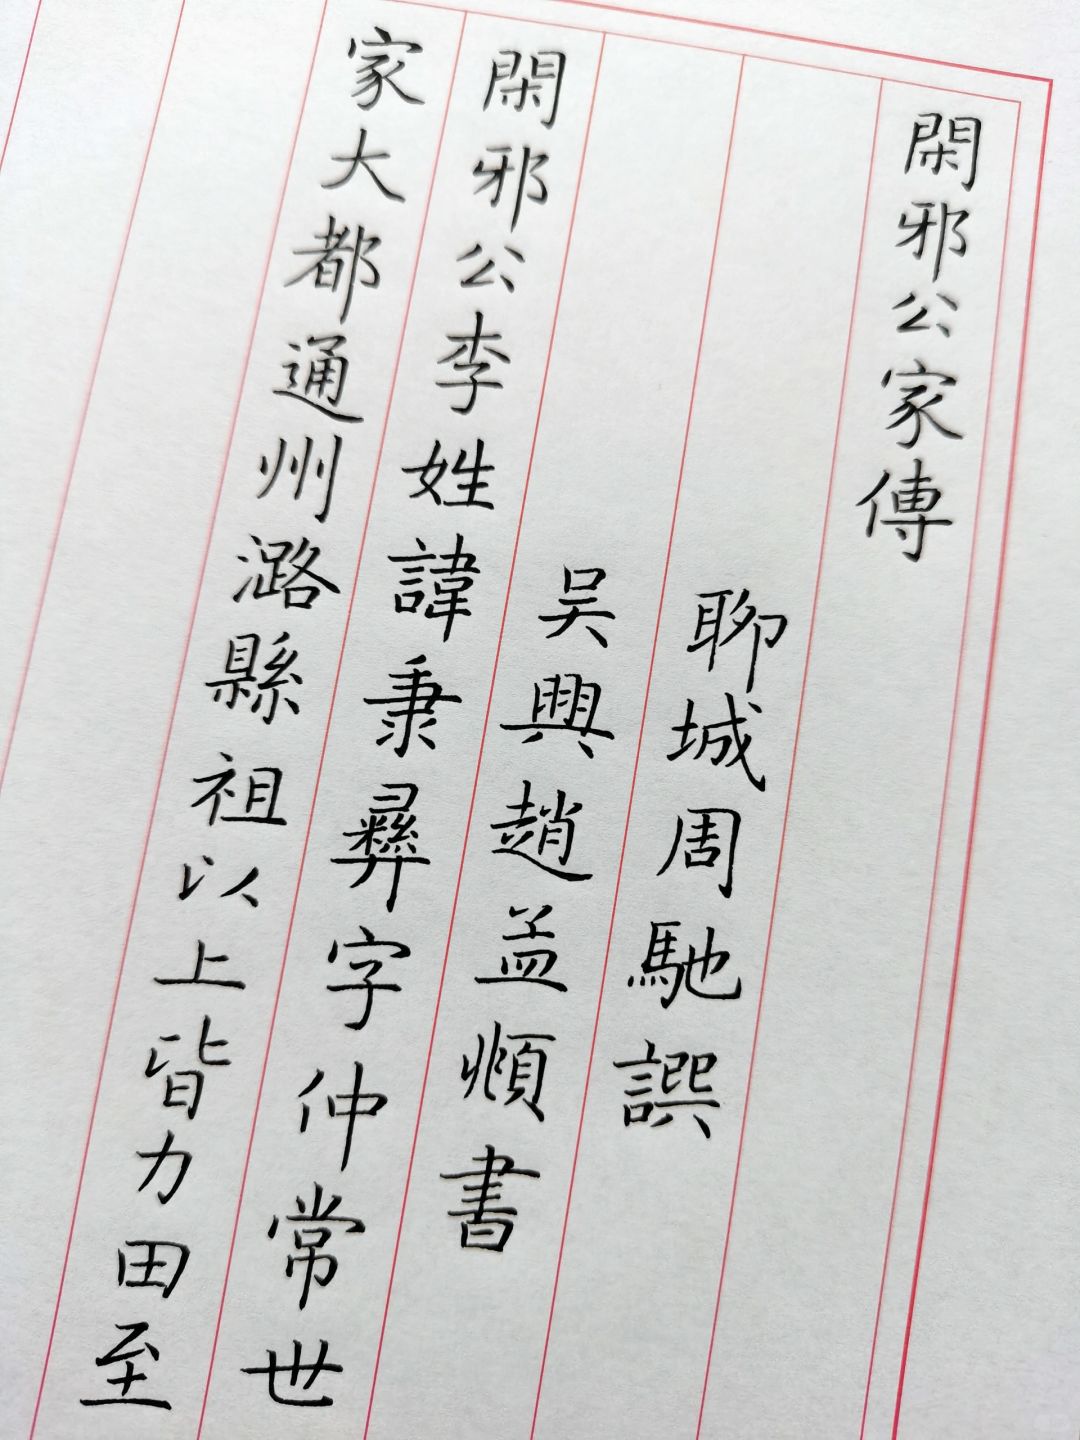 閑邪公家傳
聊城周馳譔
吴興趙孟頫書
閑邪公李姓諱秉彝字仲常世
家大都通州潞縣祖以上皆力田至